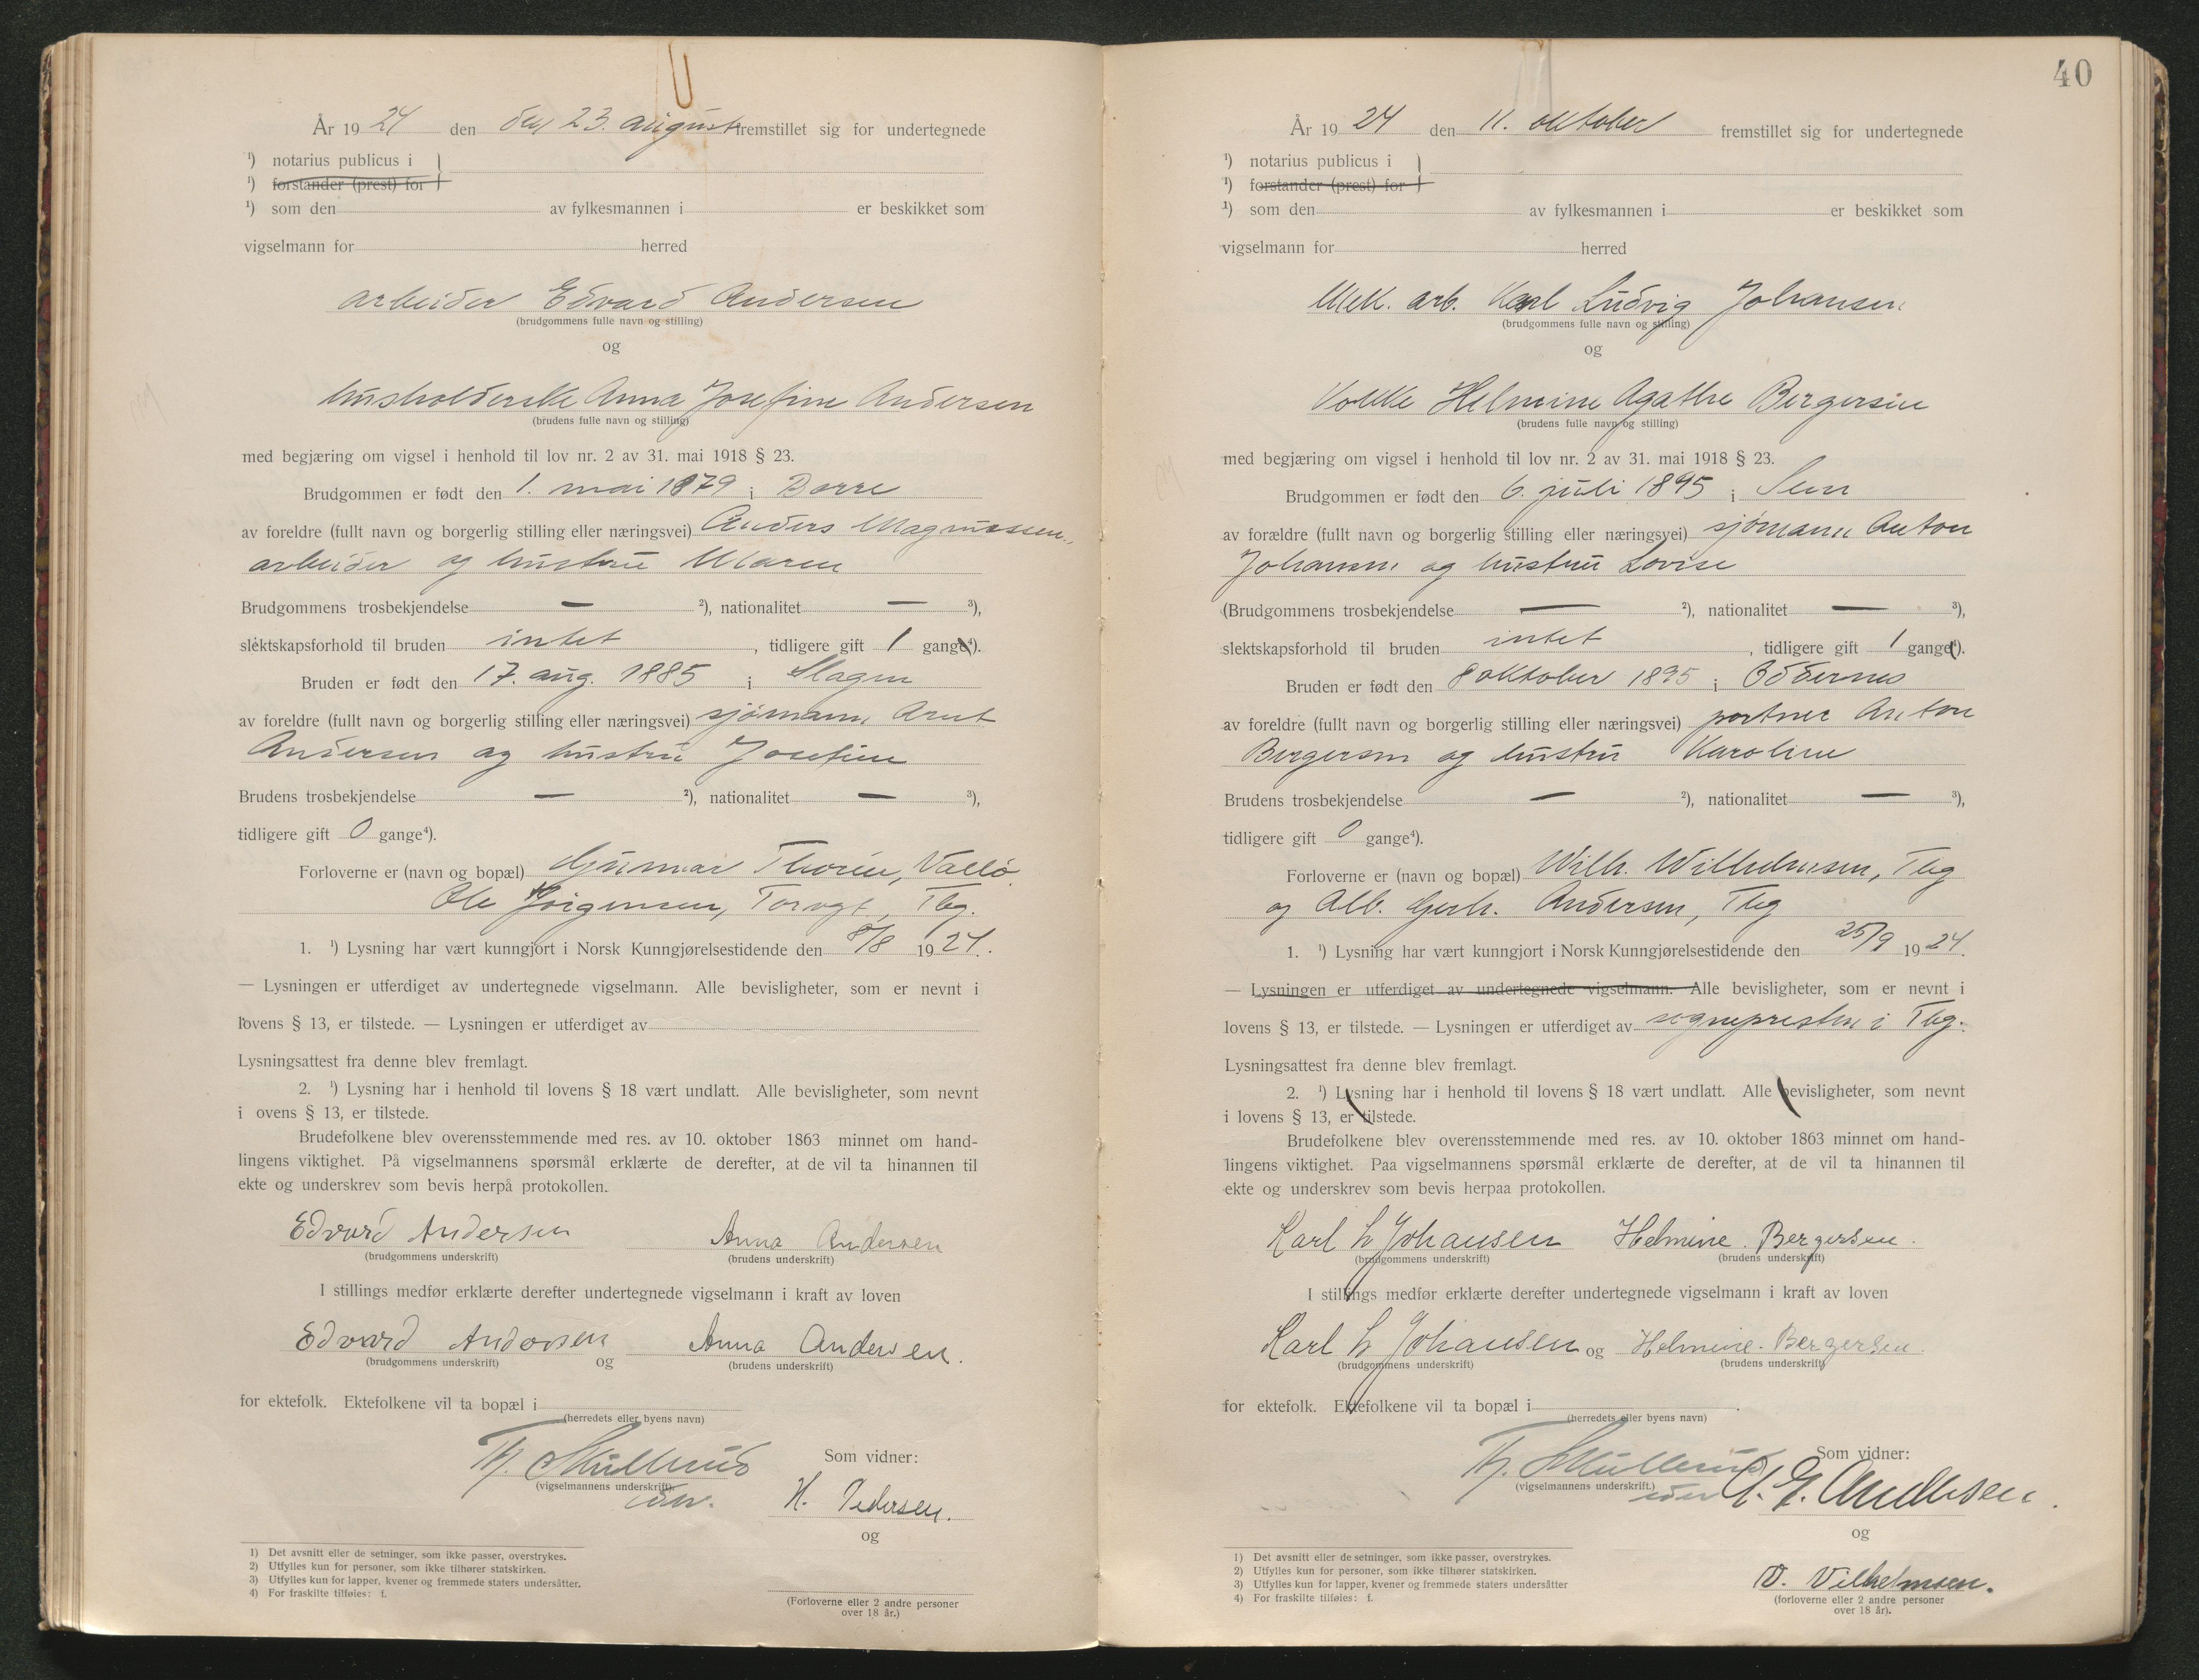 År 1924 den den 23. august fremstillet sig for undertegnede
¹) notarius publicus i
¹) forstander (prest) for
¹) som den av fylkesmannen i er beskikket som
vigselmann for herred
arbeider Edvard Andersen
(brudgommens fulle navn og stilling)
og
husholderske Anna Josefine Andersen
(brudens fulle navn og stilling)
med begjæring om vigsel i henhold til lov nr. 2 av 31. mai 1918 § 23.
Brudgommen er født den 1. mai 1879 i Borre
av foreldre (fullt navn og borgerlig stilling eller næringsvei) Anders Magnussen,
arbeider og hustru Maren
Brudgommens trosbekjendelse — ²), nationalitet — ³),
slektskapsforhold til bruden intet, tidligere gift 1 gange⁴).
Bruden er født den 17. aug. 1885 i Slagen
av foreldre (fullt navn og borgerlig stilling eller næringsvei) sjømann Arnt
Andersen og hustru Josefine
Brudens trosbekjendelse — ²), nationalitet — ³),
tidligere gift 0 gange⁴).
Forloverne er (navn og bopæl) Gunnar Thorin, Vallø
Ole Jørgensen, Torvgt, Tbg.
1. ¹) Lysning har vært kunngjort i Norsk Kunngjørelsestidende den 8/8 1924.
— Lysningen er utferdiget av undertegnede vigselmann. Alle bevisligheter, som er nevnt i
lovens § 13, er tilstede. — Lysningen er utferdiget av
Lysningsattest fra denne blev fremlagt.
2. ¹) Lysning har i henhold til lovens § 18 vært undlatt. Alle bevisligheter, som nevnt
i ovens § 13, er tilstede.
Brudefolkene blev overensstemmende med res. av 10. oktober 1863 minnet om hand-
lingens viktighet. På vigselmannens spørsmål erklærte de derefter, at de vil ta hinannen til
ekte og underskrev som bevis herpå protokollen.
Edvard Andersen Anna Andersen
(brudgommens underskrift) (brudens underskrift)
I stillings medfør erklærte derefter undertegnede vigselmann i kraft av loven
Edvard Andersen og Anna Andersen.
(brudgommens underskrift) (brudens underskrift)
for ektefolk. Ektefolkene vil ta bopæl i
(herredets eller byens navn)
Th. Skullerud Som vidner:
(vigselmannens underskrift).
H. Pedersen.
og
1) Det avsnitt eller de setninger, som ikke passer, overstrykes.
2) Utfylles kun for personer, som ikke tilhører statskirken.
3) Utfylles kun for lapper, kvener og fremmede staters undersåtter.
4) For fraskilte tilføies: f.
(Forloverne eller 2 andre personer
over 18 år.)
40
År 1924 den 11. oktober fremstillet sig for undertegnede
¹) notarius publicus i
¹) forstander (prest) for
¹) som den av fylkesmannen i er beskikket som
vigselmann for herred
Mek. arb. Karl Ludvig Johansen
(brudgommens fulle navn og stilling)
og
Kokke Helmine Agathe Bergersen
(brudens fulle navn og stilling)
med begjæring om vigsel i henhold til lov nr. 2 av 31. mai 1918 § 23.
Brudgommen er født den 6. juli 1895 i Sem
av forældre (fullt navn og borgerlig stilling eller næringsvei) sjømann Anton
Johansen og hustru Lovise
(Brudgommens trosbekjendelse — ²), nationalitet — ³),
slektskapsforhold til bruden intet, tidligere gift 1 gange⁴).
Bruden er født den 8 oktober 1895 i Oddernes
av foreldre (fullt navn og borgerlig stilling eller næringsvei) portner Anton
Bergersen og hustru Karoline
Brudens trosbekjendelse — ²), nationalitet — ³),
tidligere gift 0 gange⁴).
Forloverne er (navn og bopæl) Wilh. Wilhelmsen, Tbg
og Alb. Gerh. Andersen, Tbg
1. ¹) Lysning har vært kunngjort i Norsk Kunngjørelsestidende den 25/9 1924.
— Lysningen er utferdiget av undertegnede vigselmann. Alle bevisligheter, som er nevnt i
lovens § 13, er tilstede. — Lysningen er utferdiget av sognepresten i Tbg.
Lysningsattest fra denne blev fremlagt.
2. ¹) Lysning har i henhold til lovens § 18 vært undlatt. Alle bevisligheter, som nevnt
i lovens § 13, er tilstede.
Brudefolkene blev overensstemmende med res. av 10. oktober 1863 minnet om hand-
lingens viktighet. Paa vigselmannens spørsmål erklærte de derefter, at de vil ta hinannen til
ekte og underskrev som bevis herpaa protokollen.
Karl L Johansen Helmine. Bergersen.
(brudgommens underskrift) (brudens underskrift)
I stillings medfør erklærte derefter undertegnede vigselmann i kraft av loven
Karl L Johansen og Helmine. Bergersen.
(brudgommens underskrift) (brudens underskrift)
for ektefolk. Ektefolkene vil ta bopæl i
(herredets eller byens navn)
Th. Skullerud Som vidner:
(vigselmannens underskrift.)
A. G. Andersen.
og
1) Det avsnitt eller de setninger, som ikke passer, overstrykes.
2) Utfylles kun for personer, som ikke tilhører statskirken.
3) Utfylles kun for lapper, kvener og fremmede staters undersåtter
4) For fraskilte tilføies: f.
W. Vilhelmsen.
(forloverne eller 2 andre personer
over 18 år).